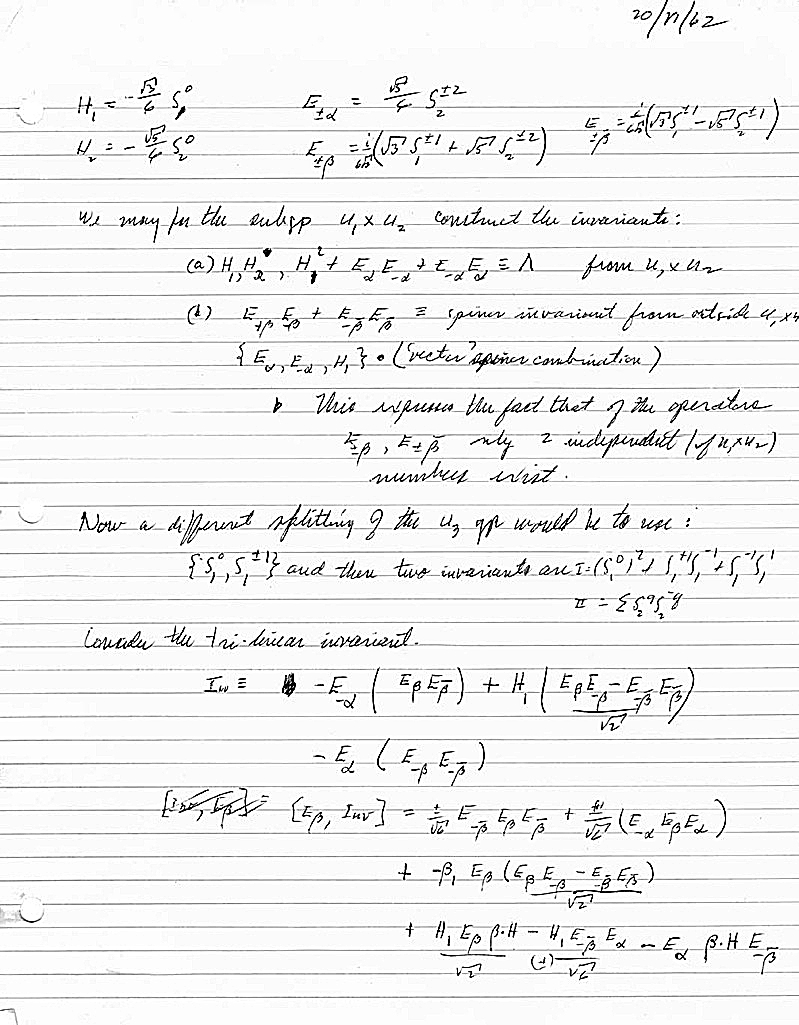 20/VI/62
H₁ = -√3/6 S₁⁰   E_{±α} = √5/6 S₂^{±2}   E_{±β̄} = i/6√5 (√3 S₁^{±1} - √5 S₂^{±1})
H₂ = -√5/6 S₂⁰   E_{±β} = (√3 S₁^{±1} + √5 S₂^{±2})
We may for the subgp U₁ x U₂ construct the invariants:
(a) H₁, H₂, H₁² + E_α E_{-α} + E_{-α} E_α ≡ Λ from U₁ x U₂
(b) E_{+β} E_{-β} + E_{-β̄} E_{β̄} ≡ spinor invariant from outside U₁ x U
{E_α, E_{-α}, H₁} • ("vector" spinor combination)
This expresses the fact that of the operators
E_{±β}, E_{±β̄} only 2 independent (of U₁ x U₂)
numbers exist.
Now a different splitting of the U₃ gp would be to use :
{S₁⁰, S₁^{±1}} and then two invariants are I = (S₁⁰)² + S₁^{+1} S₁^{-1} + S₁^{-1} S₁^{1}
II = Σ S₂^q S₂^{-q}
Consider the tri-linear invariant.
Inv ≡ -E_{-α} ( E_β E_{β̄} ) + H₁ ( E_β E_{-β} - E_{-β̄} E_{β̄} )/√2
- E_α ( E_{-β} E_{-β̄} )
[E_β, Inv] = ±/√6 E_{-β̄} E_β E_{β̄} + /√6 ( E_{-α} E_β E_α )
+ -β₁ E_β ( E_β E_{-β} - E_{-β̄} E_{β̄} )/√2
+ H₁ E_β β·H/√2 - H₁ E_{-β̄} E_α/(±)√6 - E_α β·H E_{-β̄}